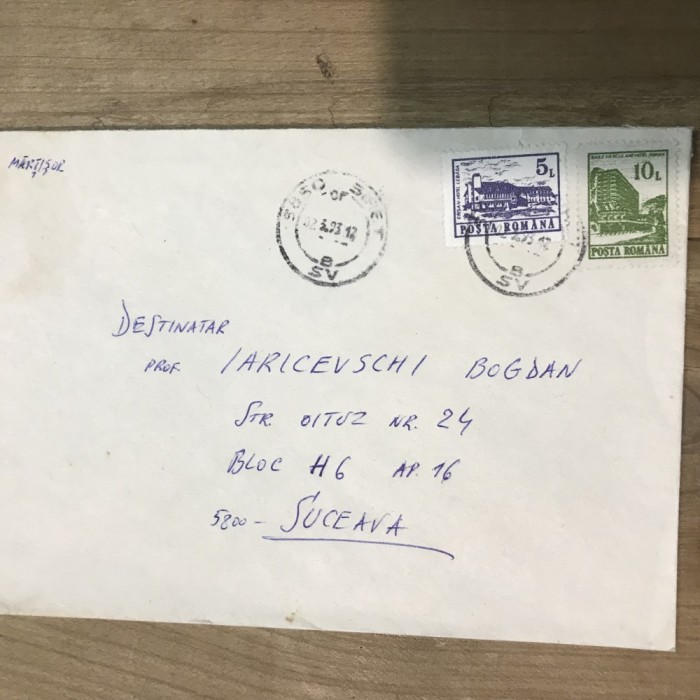 MĂRȚIȘOR
5850 OF SIRET
02.3.93.12
B
SV
5L
POSTA ROMÂNA
10L
POSTA ROMANA
B
SV
DESTINATAR
PROF. IARICEVSCHI BOGDAN
STR. OITUZ NR. 24
BLOC H6 AP. 16
5800 - SUCEAVA